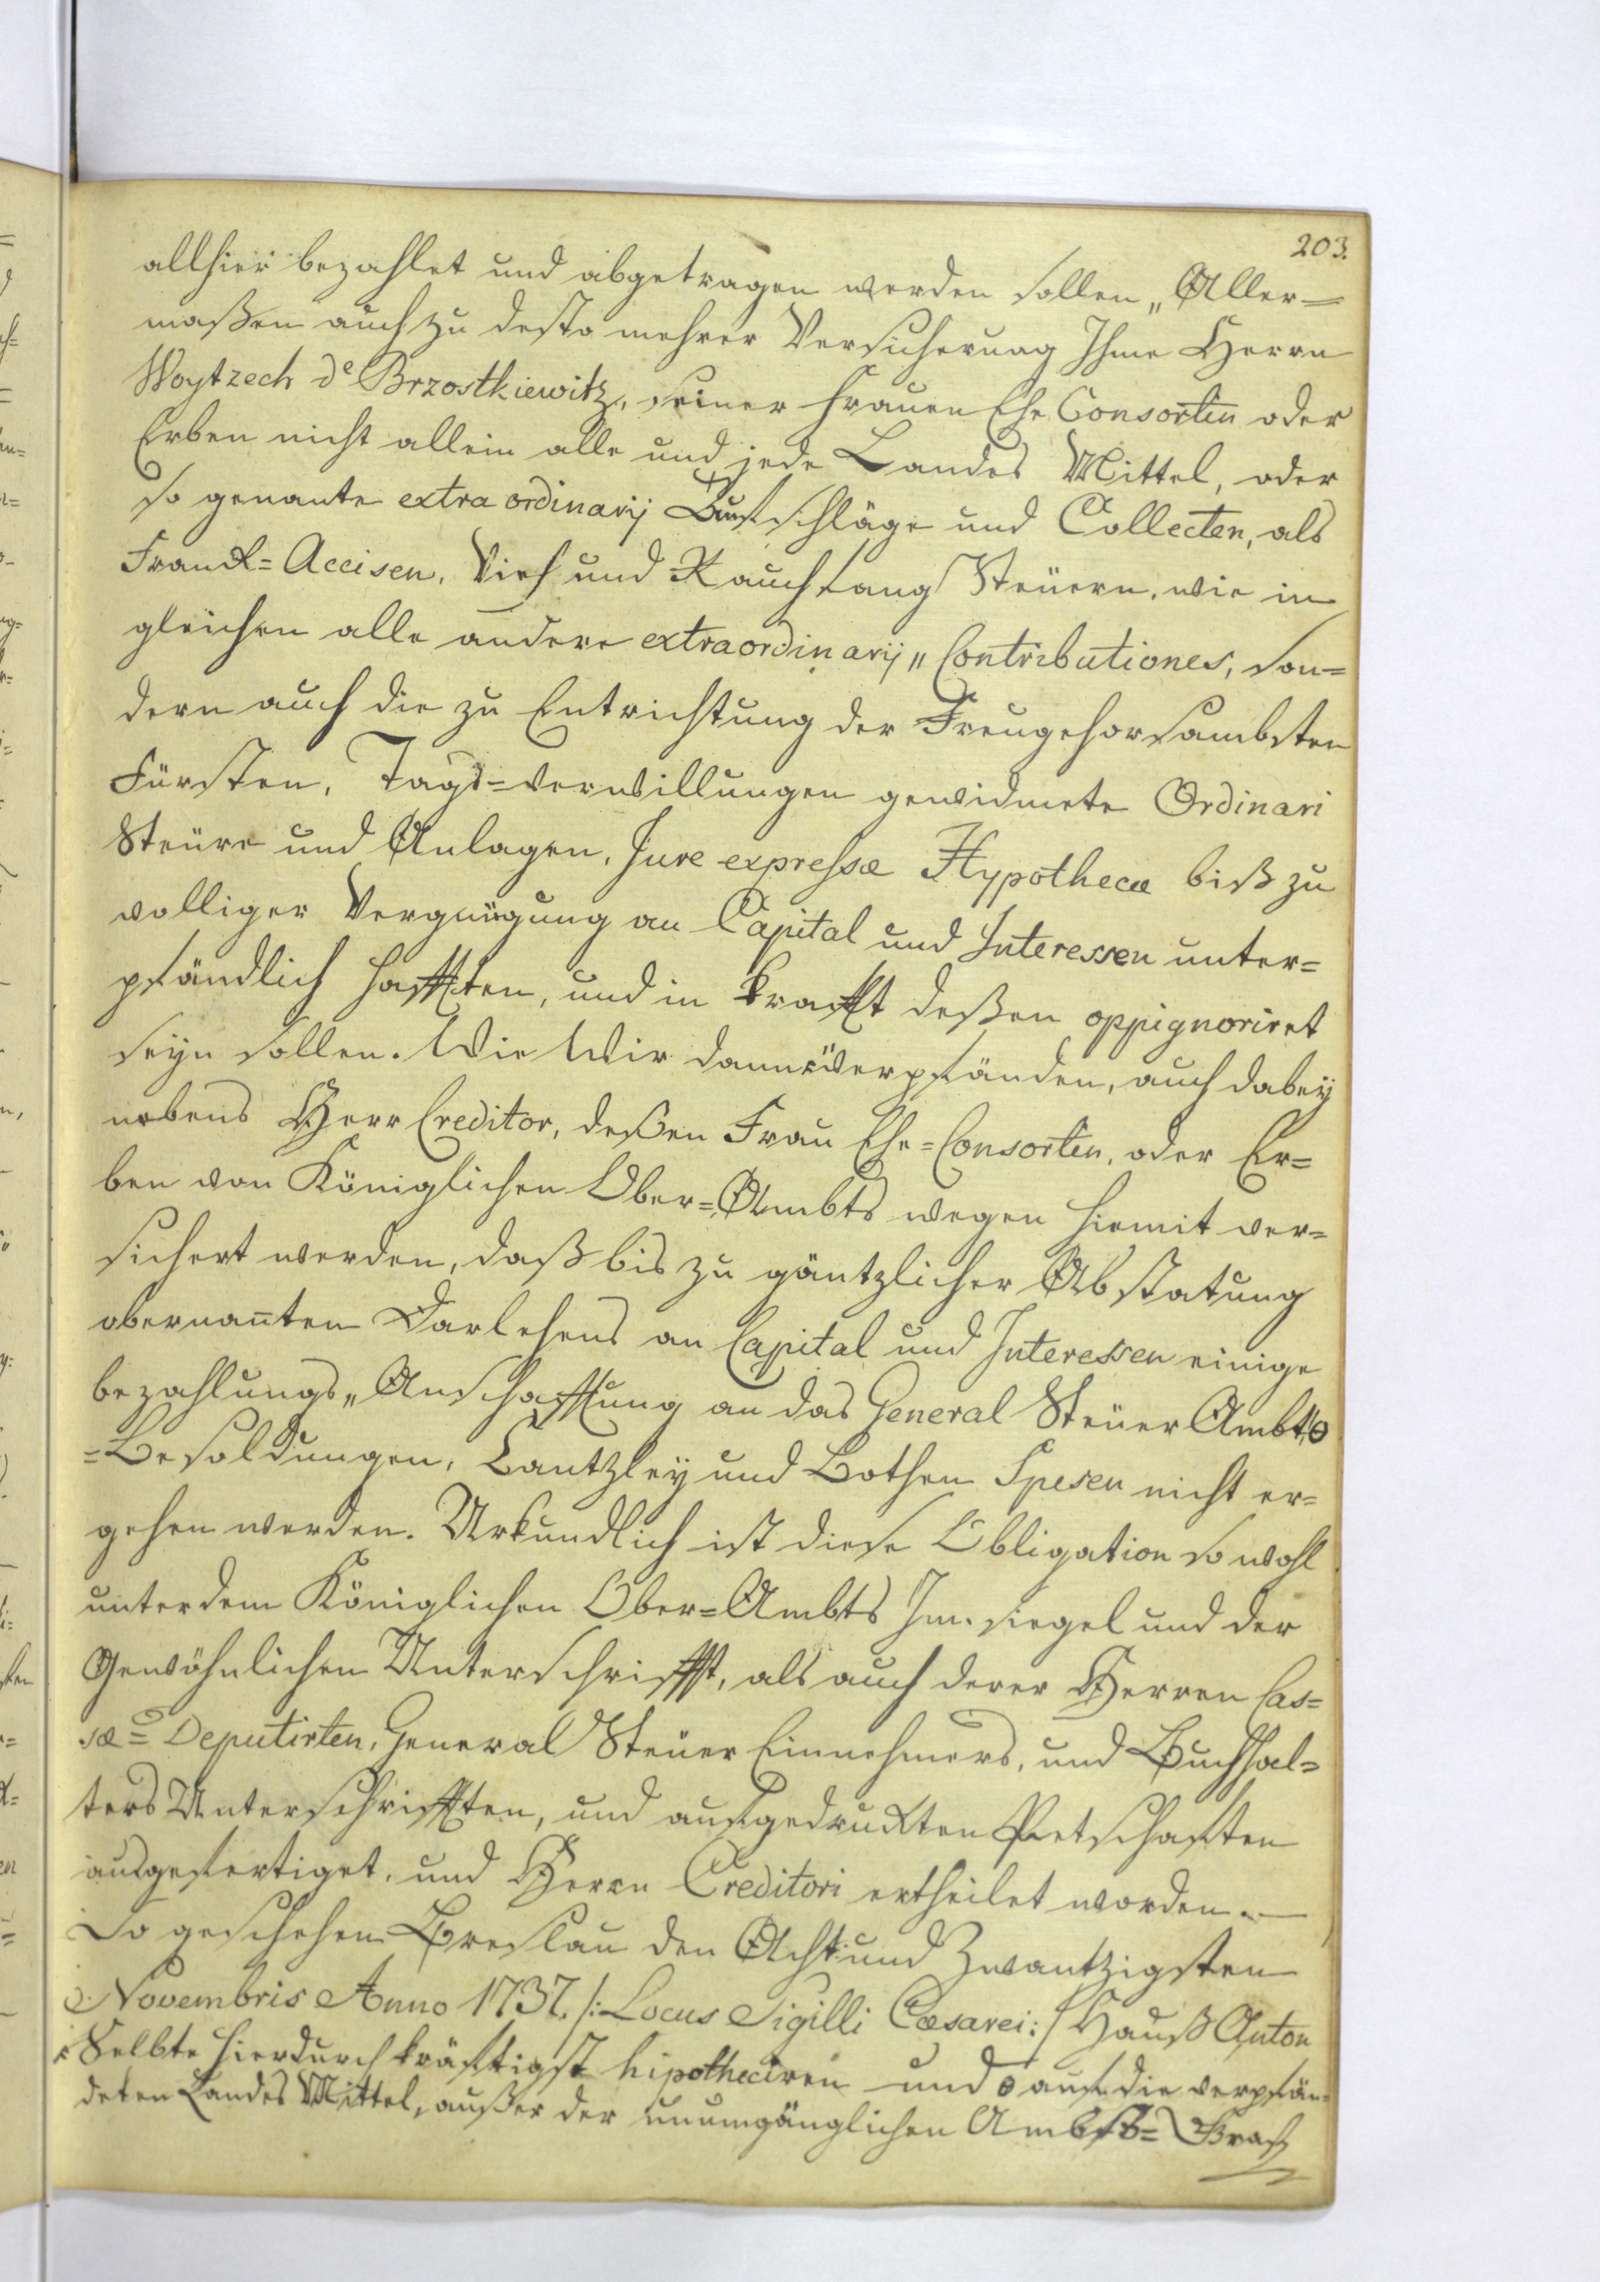 203.
allhier bezahlet und abgetragen werden sollen „ Aller-
maßen auch zu desto mehrer Versicherung Ihme Herrn
Woytzech de Brzostkiewitz, seiner Frauen Ehe Consortin oder
Erben nicht allein alle und jede Landes Mittel, oder
so genante extra ordinarij Auffschläge und Collecten, als
Tranck= Accisen, Vieh und Rauchfang Steuern, wie in
gleichen alle andere extraordinarij „ Contributiones, son=
dern auch die zu Entrichtung der Treugehorsambsten
Fürsten, Tags=verwillungen gewidmete Ordinari
Steüre und Anlagen, Jure expressæ Hypothecæ biß zu
volliger Vergnügung an Capital und Interessen unter=
pfändlich hafften, und in krafft deßen oppignoriret
seyn sollen. Wie Wir dann verpfänden, auch dabey
nebens Herr Creditor, deßen Frau Ehe=Consortin, oder Er=
ben von Königlichen Ober=Ambts wegen hiemit ver=
sichert werden, daß bis zu gäntzlicher Abstatung
obernan̄ten Darlehens an Capital und Interessen einige
bezahlungs„ Anschaffung an das General Steüer Ambt
=Besoldungen, Cantzley und Bothen Spesen nicht er=
gehen werden. Urkundlich ist diese Obligation so wohl
unter dem Königlichen Ober=Ambts In.siegel und der
Gewöhnlichen Unterschrifft, als auch derer Herren Cas=
sæ= Deputirten, General Steüer Einnehmers, und Buchhal=
ters Unterschrifften, und aufgedruckten Petschafften
ausgefertiget, und Herrn Creditori ertheilet worden.—
So geschehen Breslau den Acht und Zwantzigsten
Novembris Anno 1737. /: Locus Sigilli Cæsarei :/ Hanß Anton
Selbte hierdurch kräftigst hipotheciren und auf die verpfän=
deten Landes Mittel, außer der unumgänglichen Ambts=